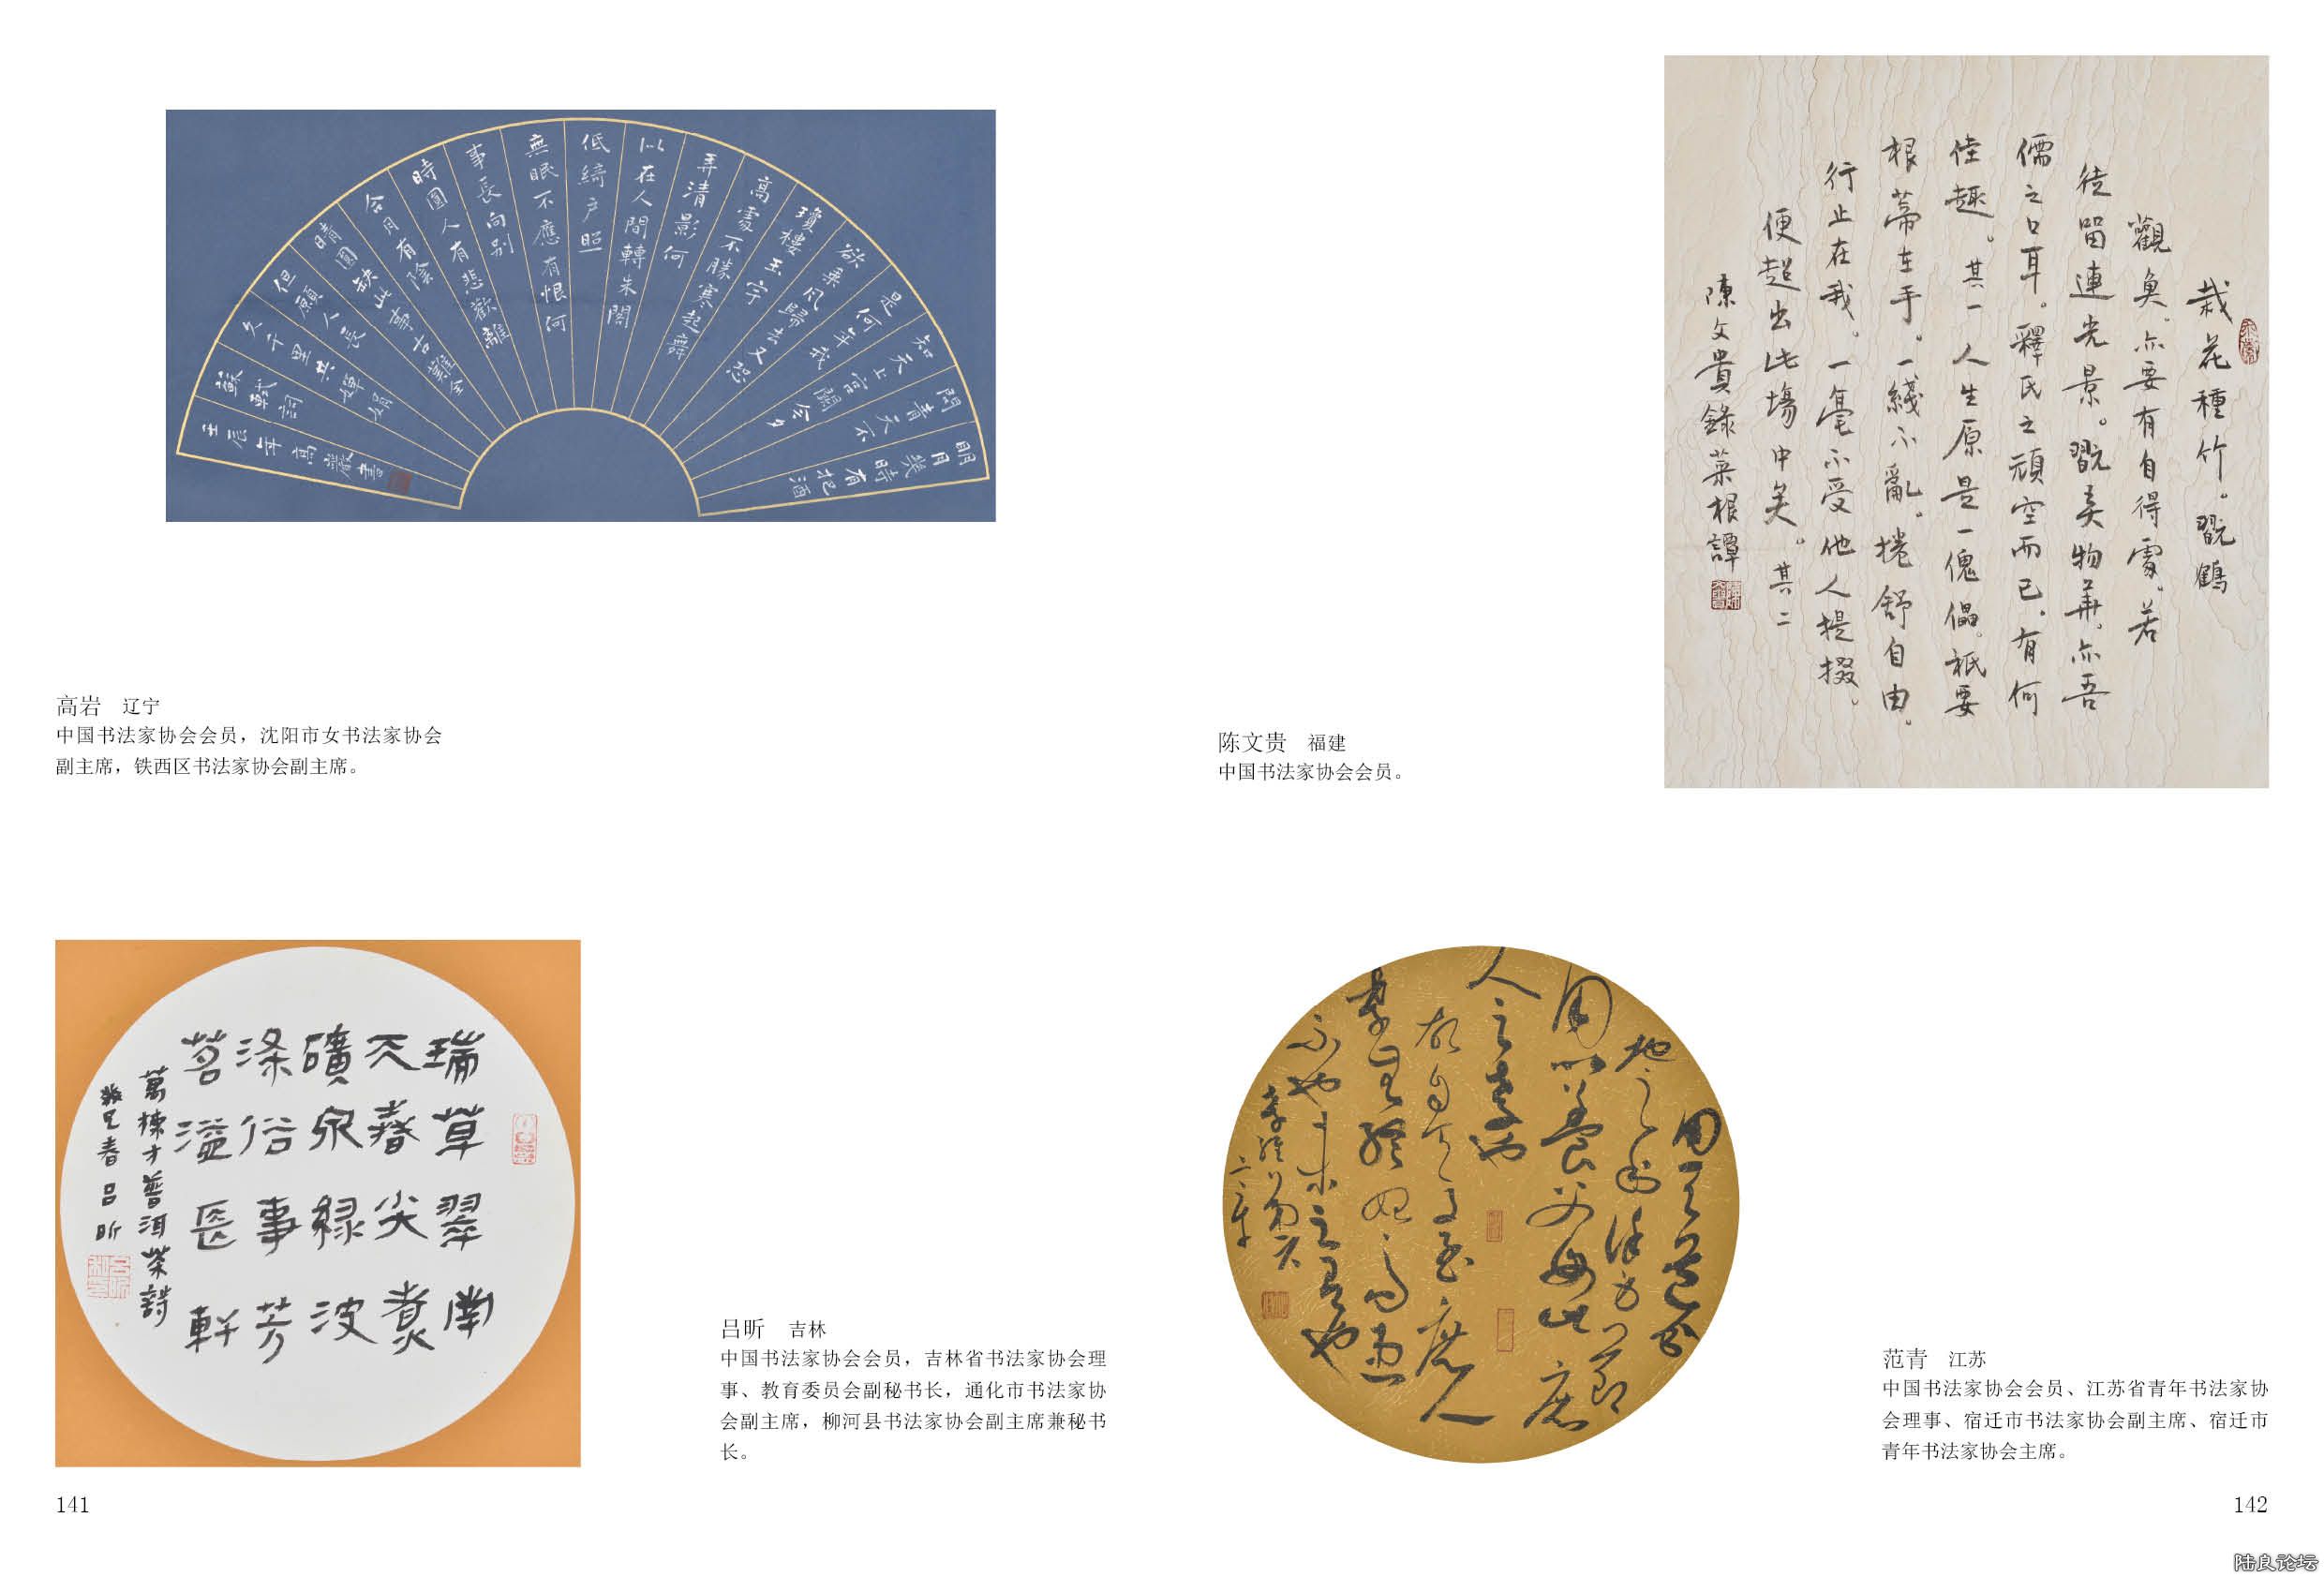 明月幾時有把酒
問青天不
知天上宮闕今夕
是何年我
欲乘風歸去又恐
瓊樓玉宇
高處不勝寒起舞
弄清影何
似在人間轉朱閣
低綺戶照
無眠不應有恨何
事長向別
時圓人有悲歡離
合月有陰
晴圓缺此事古難全
但願人長
久千里共嬋娟
蘇軾詞
壬辰年高巖書
高岩 辽宁
中国书法家协会会员，沈阳市女书法家协会
副主席，铁西区书法家协会副主席。
瑞草翠南
天春尖煮
礦泉綠波
滌俗事芳
茗溢長軒
萬棟才普洱茶詩
癸巳春呂昕
吕昕 吉林
中国书法家协会会员，吉林省书法家协会理
事、教育委员会副秘书长，通化市书法家协
会副主席，柳河县书法家协会副主席兼秘书
长。
141
栽花種竹。翫鶴
觀魚。亦要有自得處。若
徒留連光景。翫弄物華。亦吾
儒之口耳。釋氏之頑空而已。有何
佳趣。其一 人生原是一傀儡。祇要
根蒂在手。一綫不亂。捲舒自由。
行止在我。一毫不受他人提掇。
便超出此場中矣。其二
陳文貴錄菜根譚
陈文贵 福建
中国书法家协会会员。
用天之道分
地之利謹身節
用以養父母此庶
人之孝也
故自天子至庶人
孝無終始而患
不
未之有也
范青 江苏
中国书法家协会会员、江苏省青年书法家协
会理事、宿迁市书法家协会副主席、宿迁市
青年书法家协会主席。
142
陆良论坛